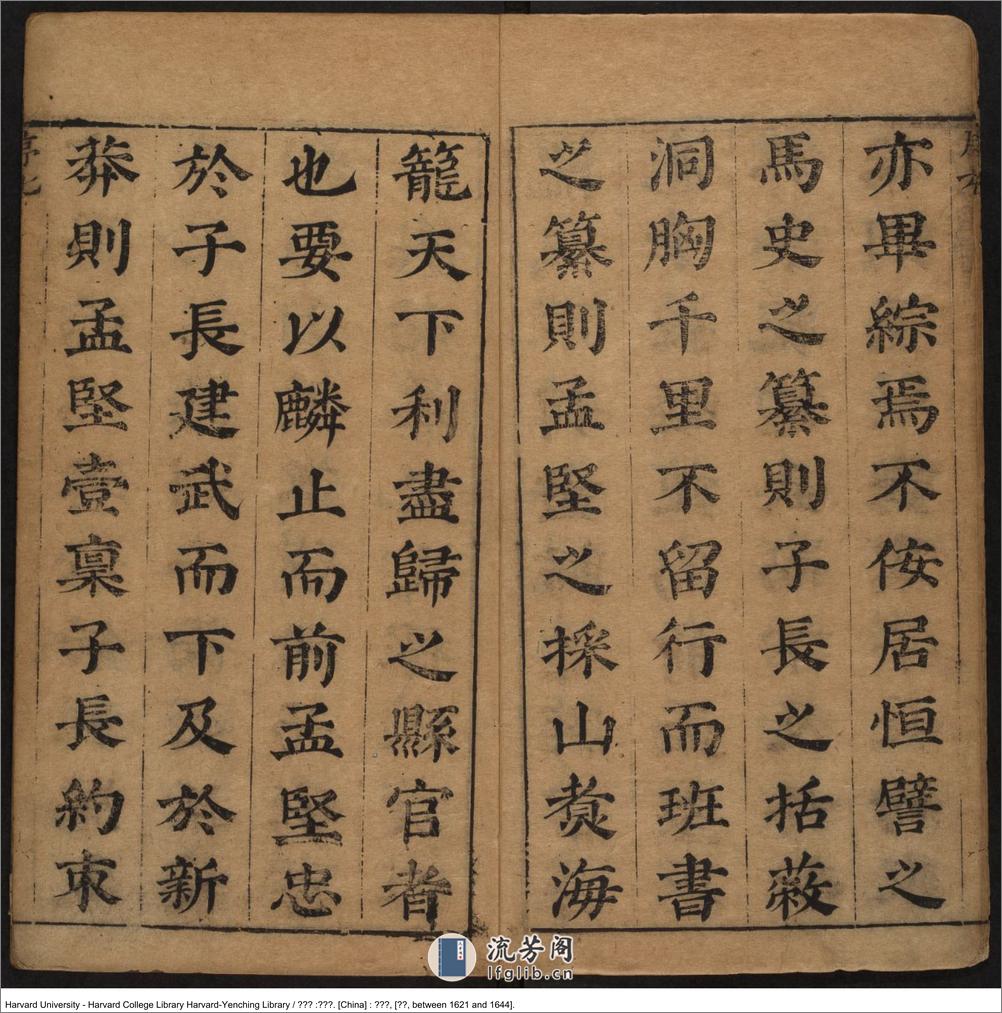 亦畢綜焉不侫居恒譬之
馬史之纂則子長之括蔽
洞胸千里不留行而班書
之纂則孟堅之採山煑海
籠天下利盡歸之縣官者
也要以麟止而前孟堅忠
於子長建武而下及於新
莽則孟堅壹稟子長約束
流芳阁
lfglib.cn
Harvard University - Harvard College Library Harvard-Yenching Library / ??? :???. [China] : ???, [??, between 1621 and 1644].